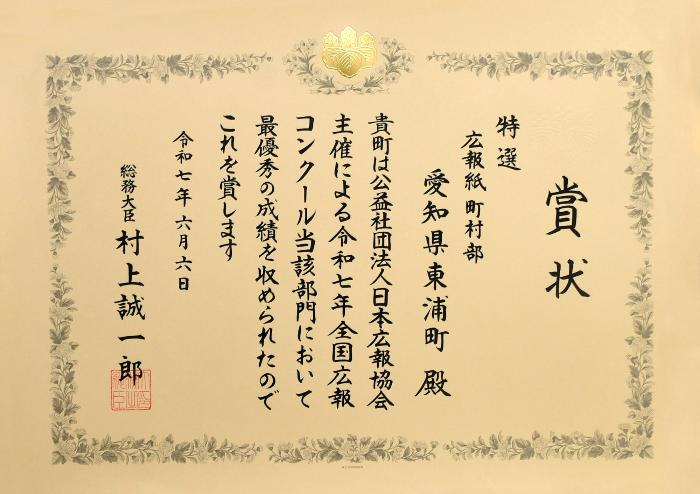 賞状
特選
広報紙 町村部
愛知県東浦町 殿
貴町は公益社団法人日本広報協会
主催による令和七年全国広報
コンクール当該部門において
最優秀の成績を収められたので
これを賞します
令和七年六月六日
総務大臣 村上誠一郎